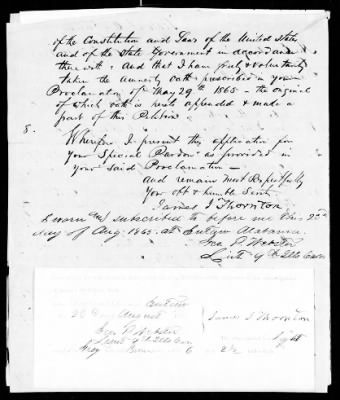 of the Constitution and Laws of the United States
and of the State Government in accordance
therewith. And that I have freely & voluntarily
taken the Amnesty oath prescribed in your
Proclamation of May 29th 1865 - the original
of which oath is hereto appended & made a
part of this Petition
8. Wherefore I present this application for
Your Special Pardon as provided in
your said Proclamation -
And remain Most Respectfully
Your obt & humble Servt
James I Thornton
Sworn to & subscribed to before me this 2nd
day of Aug. 1865. at Eutaw Alabama.
Geo P. Webster
Lieut 9th Ills Cav
Eutaw
August
James I Thornton
Geo P Webster
Lieut 9th Ills Cav
Light
6